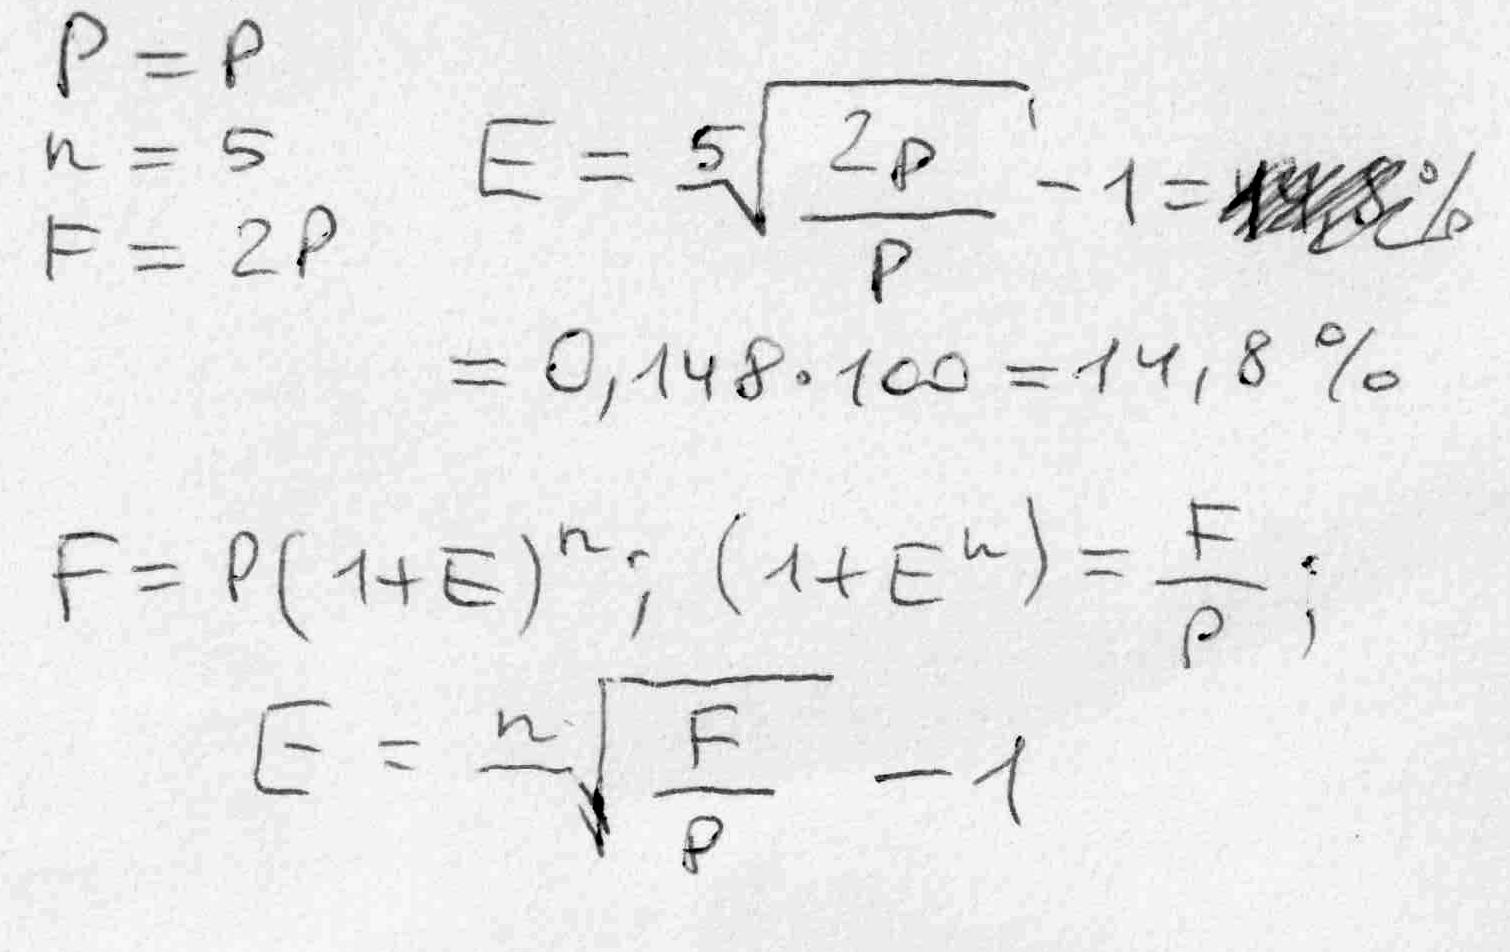 P = P
n = 5
F = 2P
E = ⁵√(2P/P) - 1 = %
= 0,148 · 100 = 14,8 %
F = P(1+E)ⁿ; (1+Eⁿ) = F/P;
E = ⁿ√(F/P) - 1